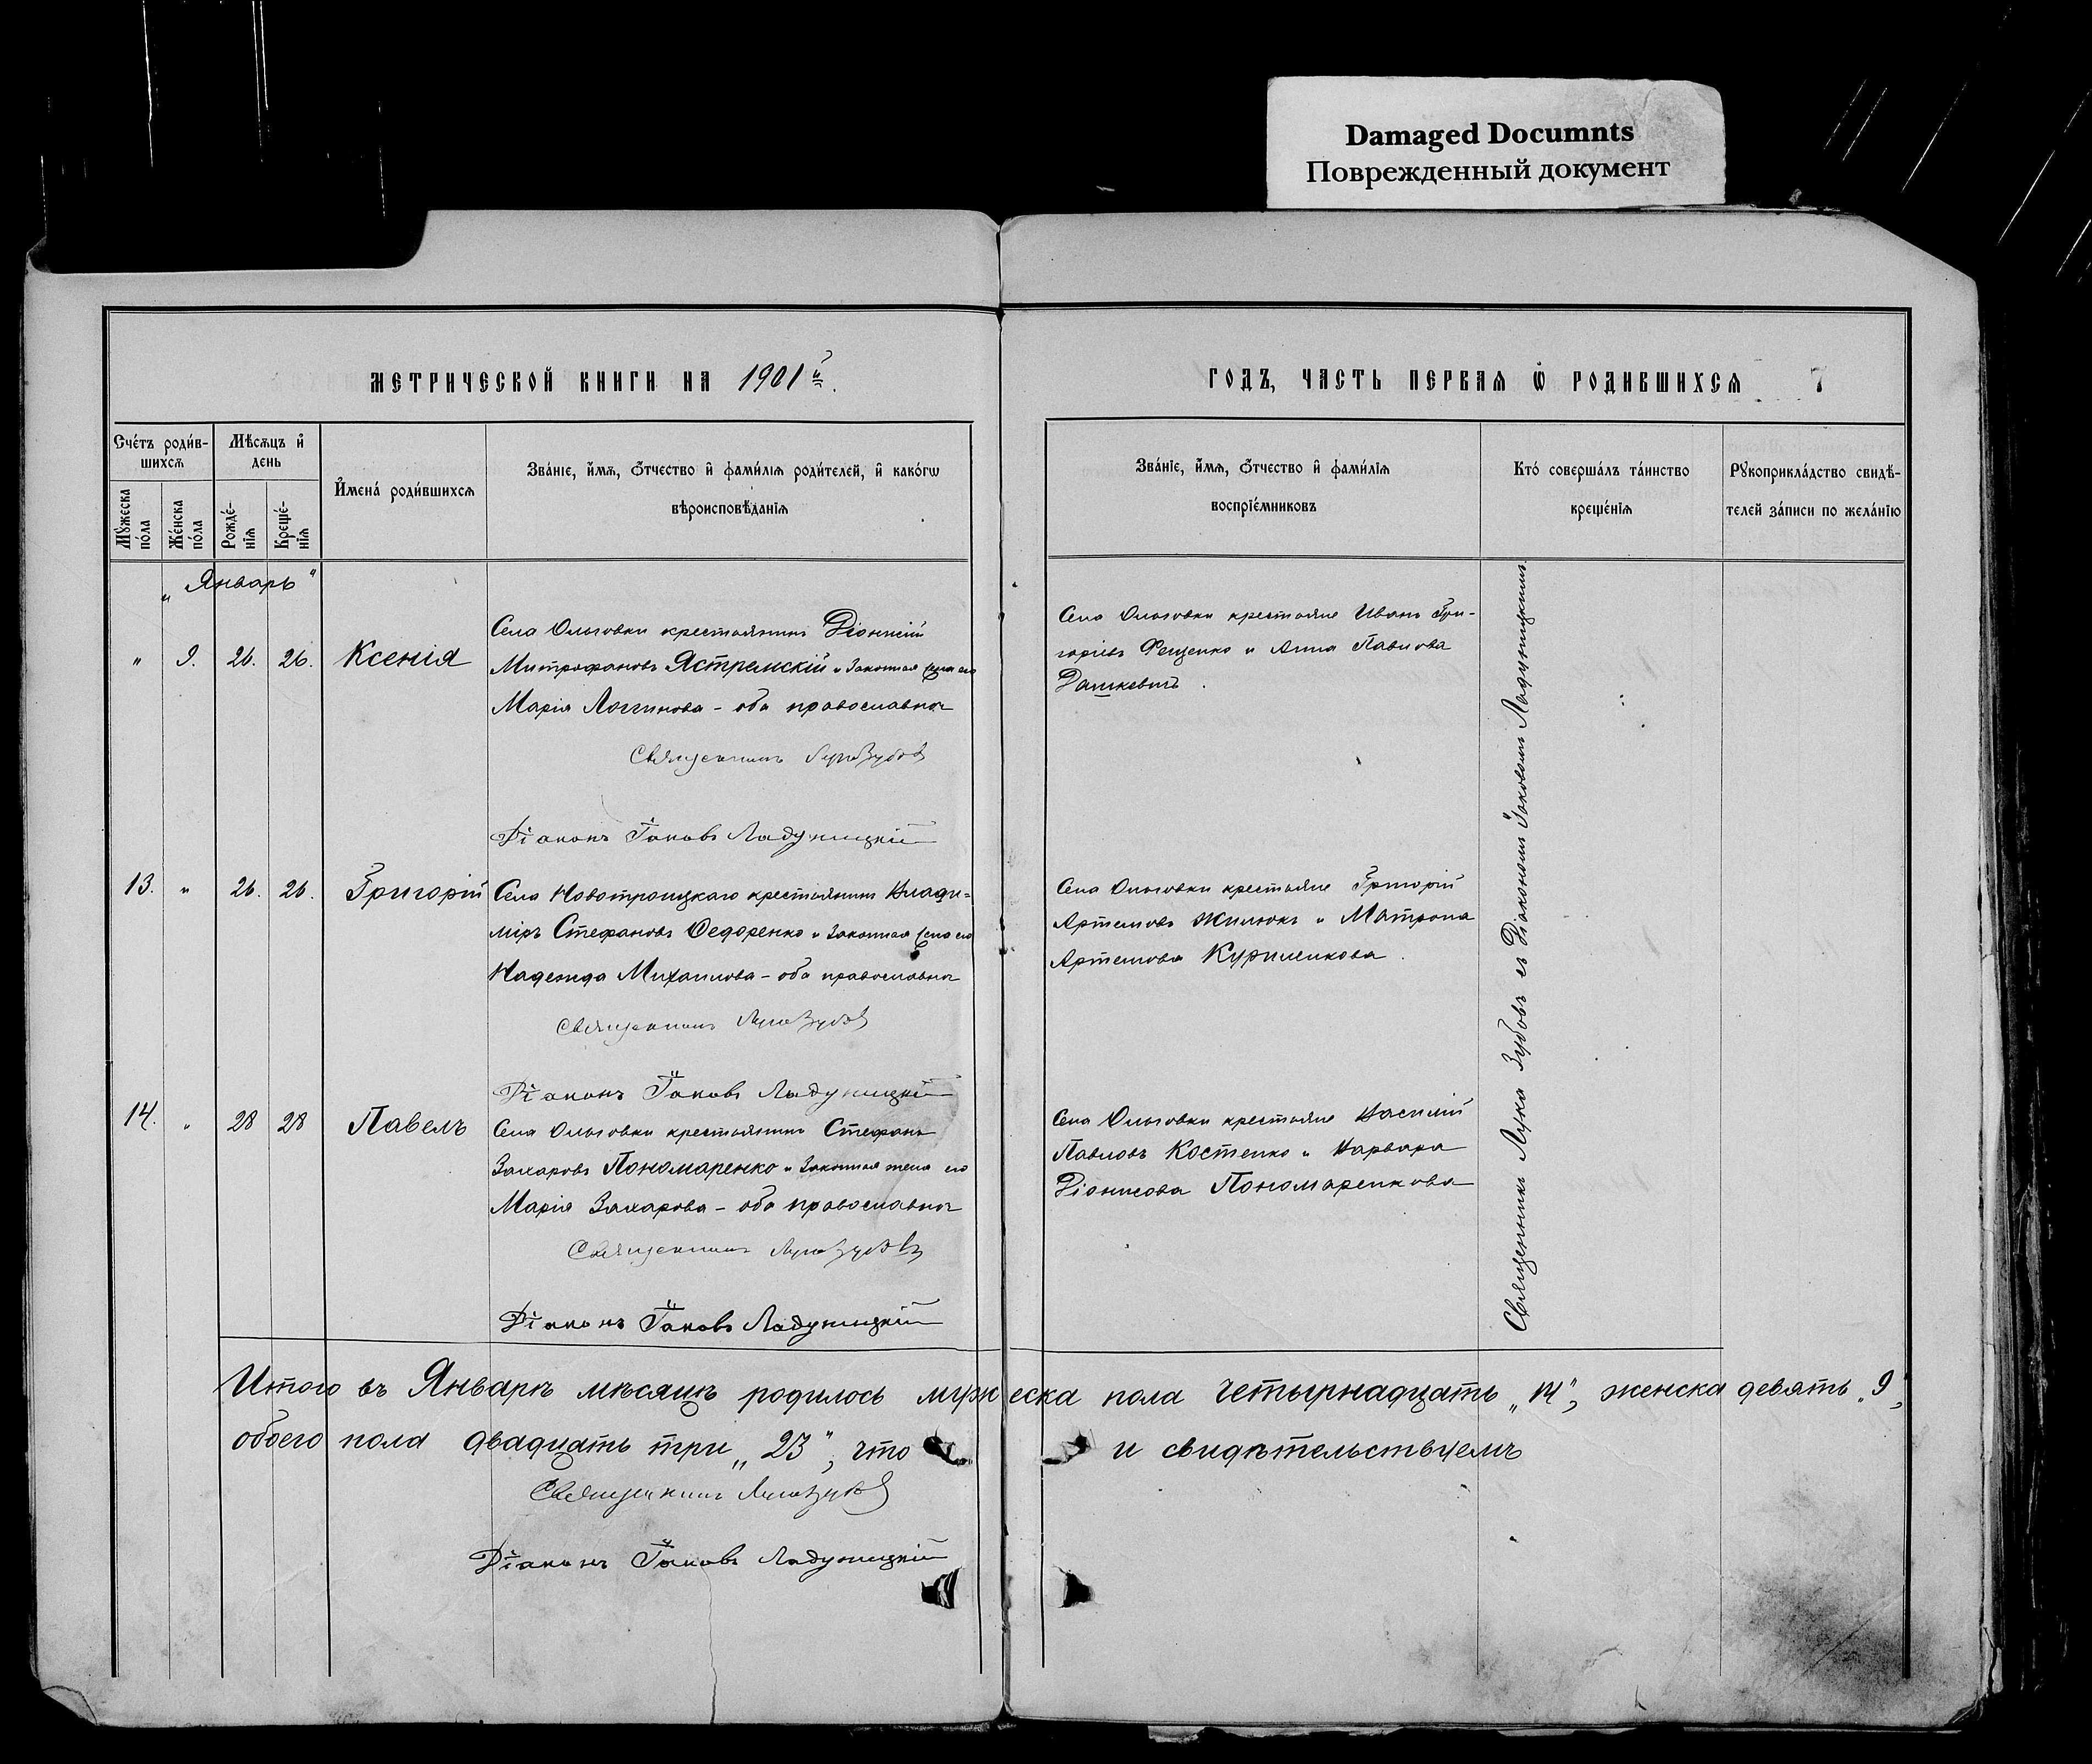 Damaged Documnts
Поврежденный документ
МЕТРИЧЕСКОЙ КНИГИ НА 1901й.
ГОДЪ, ЧАСТЬ ПЕРВАЯ Ѡ РОДИВШИХСЯ 7
Счетъ родив-
шихся
Мѣсяцъ и
день
Мужеска пола
Женска пола
Рожде-
нія
Креще-
нія
Имена родившихся
Званіе, имя, отчество и фамилія родителей, и какогѡ
вѣроисповѣданія
Званіе, имя, отчество и фамилія
воспріемниковъ
Кто совершалъ таинство
крещенія
Рукоприкладство свидѣ-
телей записи по желанію
„Январь“
" 9. 26. 26. Ксенія
Села Ольговки крестьянинъ Діонисій
Митрофановъ Ястремскій и законная жена его
Марія Логгинова - оба православные
Священникъ Лука Зубовъ
Діаконъ Іаковъ Ладуницкій
Села Ольговки крестьяне Иванъ Гри-
горіевъ Фещенко и Анна Павлова
Дашкевичъ.
13. " 26. 26. Григорій
Села Новотроицкаго крестьянинъ Влади=
міръ Стефановъ Ѳедоренко и законная жена его
Надежда Михаилова - оба православные
Священникъ Лука Зубовъ
Діаконъ Іаковъ Ладуницкій
Села Ольговки крестьяне Григорій
Артемовъ Жилюкъ и Матрона
Артемова Куриленкова.
14. " 28 28 Павелъ
Села Ольговки крестьянинъ Стефанъ
Захаровъ Пономаренко и законная жена его
Марія Захарова - оба православные
Священникъ Лука Зубовъ
Діаконъ Іаковъ Ладуницкій
Села Ольговки крестьяне Василій
Павловъ Костенко и Варвара
Діонисова Пономаренкова
Священникъ Лука Зубовъ съ Діакономъ Іаковомъ Ладуницкимъ
Итого въ Январѣ мѣсяцѣ родилось мужеска пола четырнадцать „14“, женска девять „9“,
обоего пола двадцать три „23“, что и свидѣтельствуемъ
Священникъ Лука Зубовъ
Діаконъ Іаковъ Ладуницкій